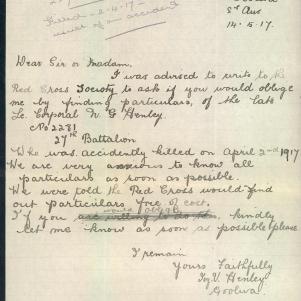 Sth Aus
14-5-17.
Killed - 2-4-17 -
an accident
Dear Sir or Madam,
I was advised to write to the
Red Cross Society to ask if you would oblige
me by finding particulars, of the late
Le. Corporal W. G Henley.
No 2281
27th Battalion
Who was accidently killed on April 2nd 1917
We are very anxious to know all
particulars as soon as possible.
We were told the Red Cross would find
out particulars free of cost.
If you would oblige kindly
let me know as soon as possible please
I remain
Yours Faithfully
V. Henley
Goolwa.